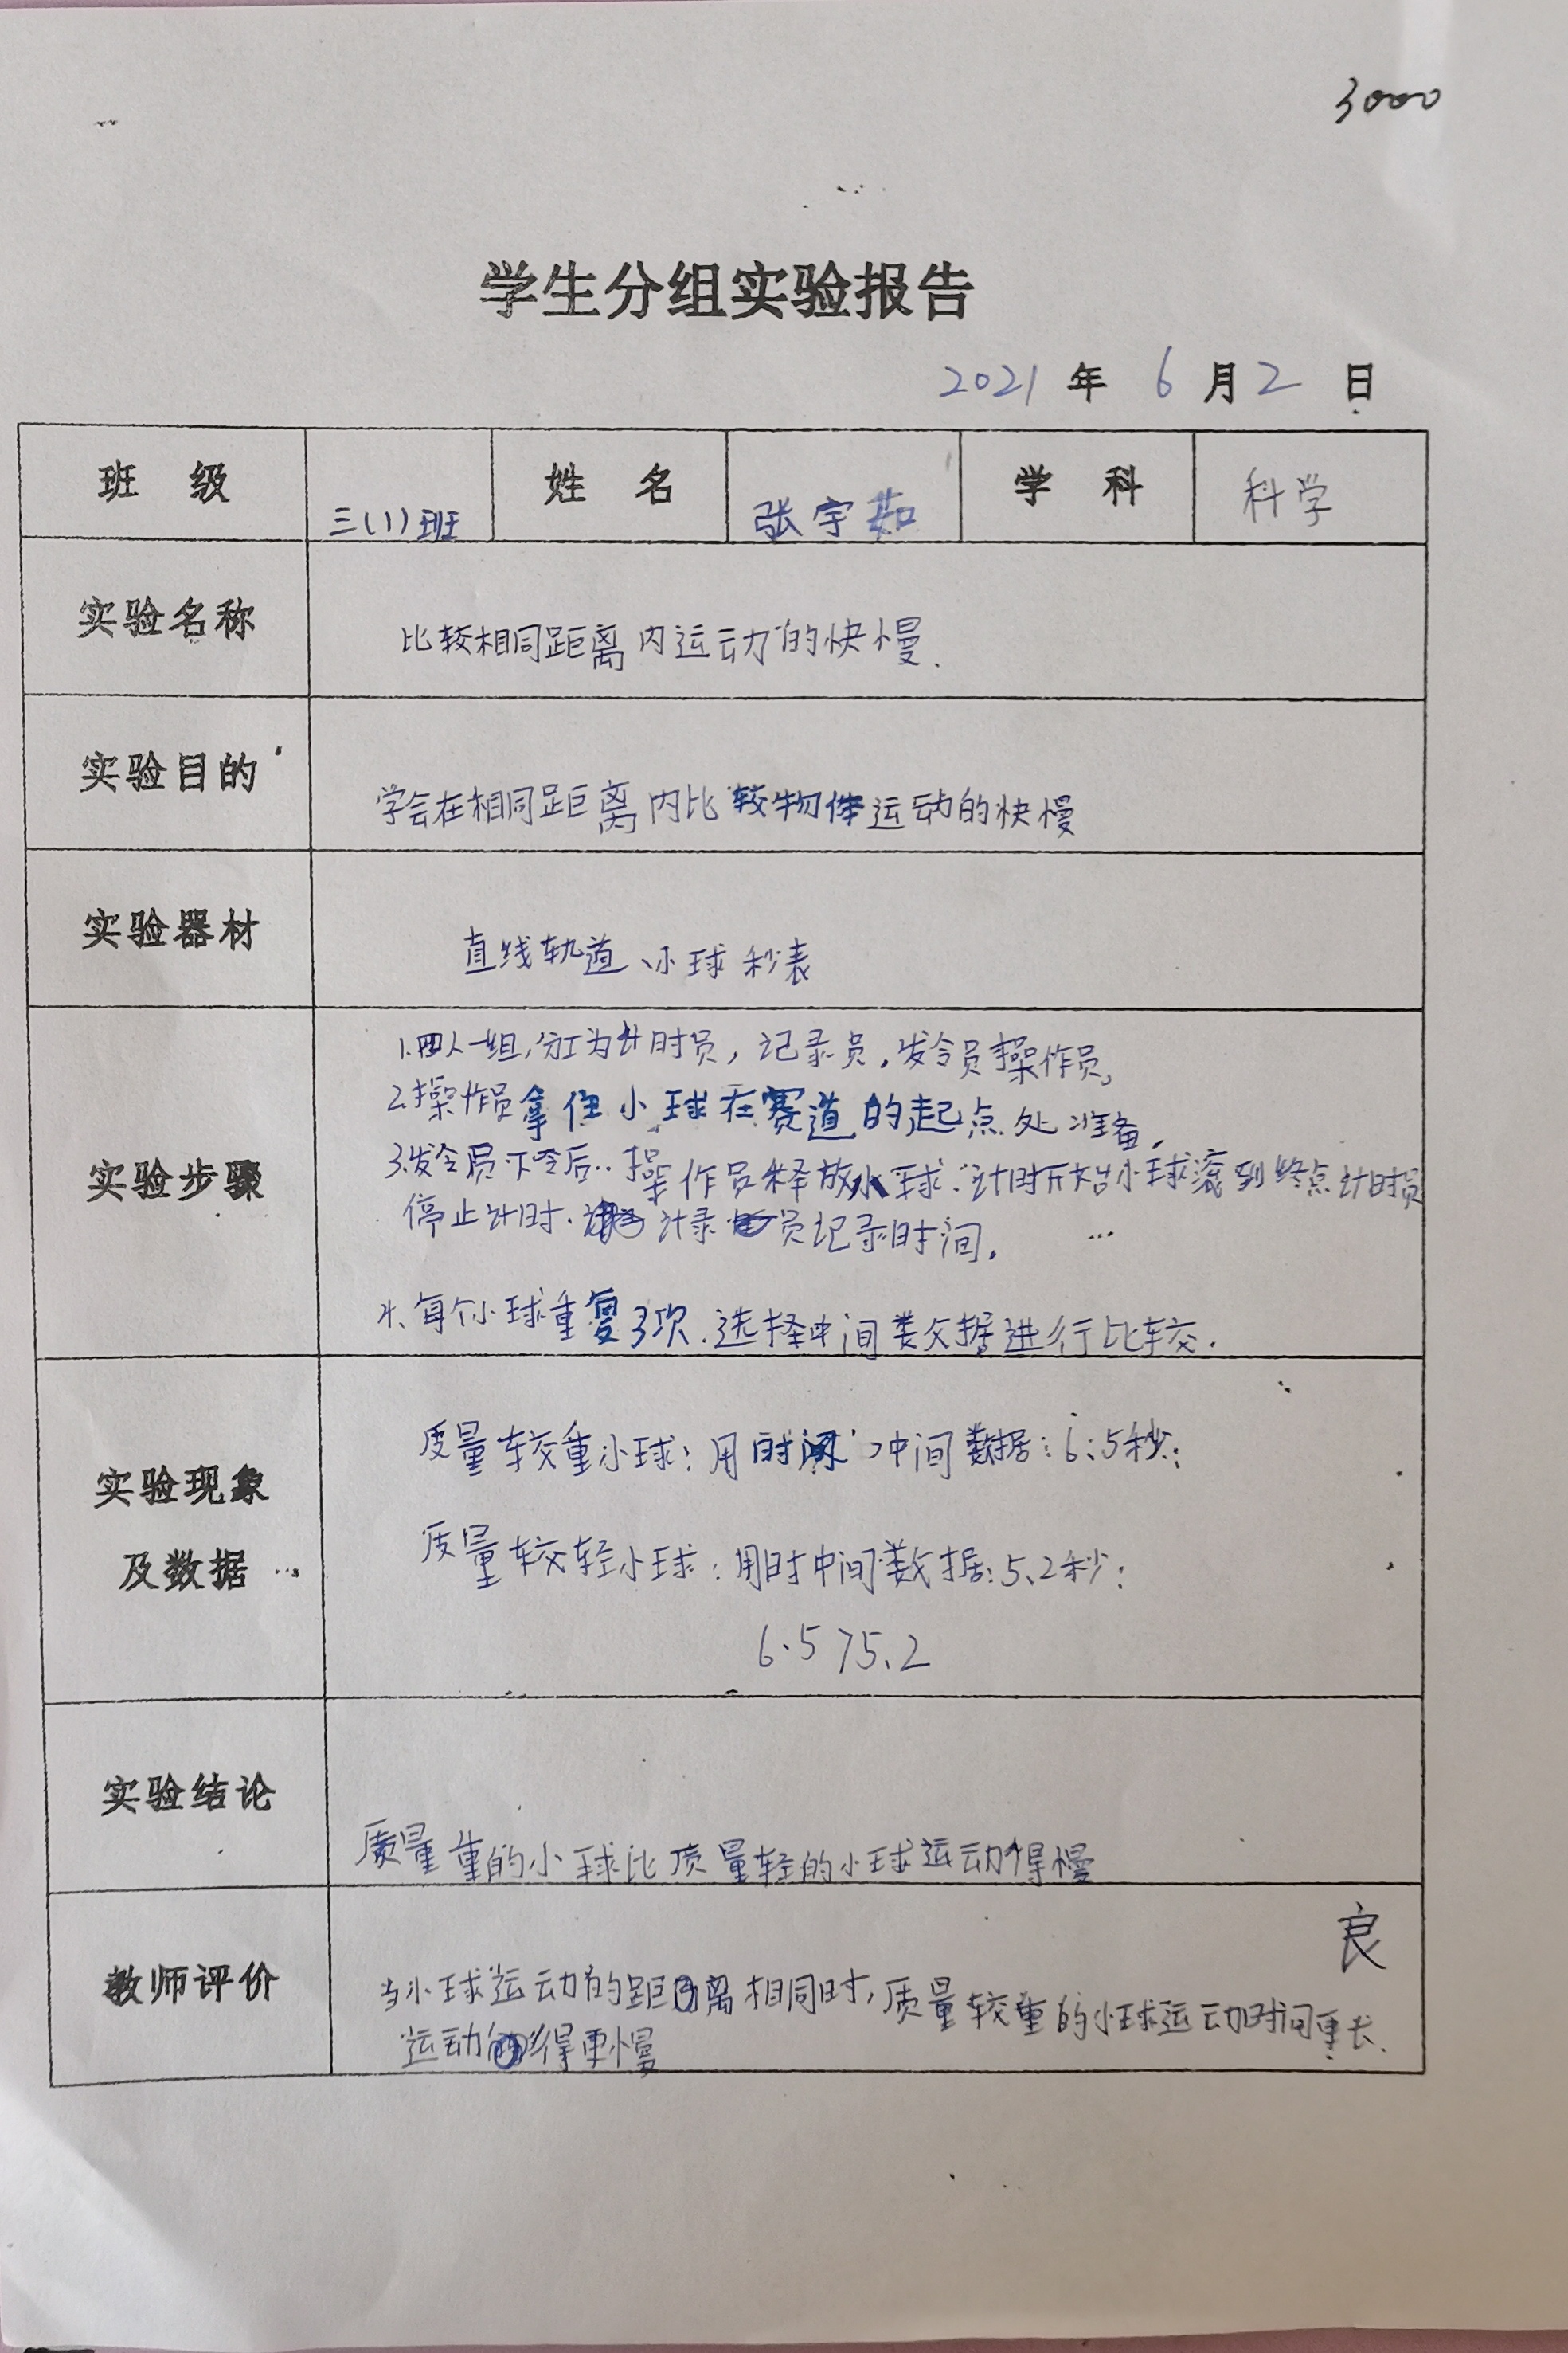 3000
学生分组实验报告
2021 年 6 月 2 日
班 级 三(1)班 姓 名 张宇茹 学 科 科学
实验名称 比较相同距离内运动的快慢.
实验目的 学会在相同距离内比较物体运动的快慢
实验器材 直线轨道、小球 秒表
实验步骤
1.四人一组,分工为计时员,记录员,发令员操作员,
2.操作员拿住小球在赛道的起点处准备,
3.发令员下令后..操作员释放小球.计时开始小球滚到终点计时员
停止计时. 计录员记录时间.
4、每个小球重复3项.选择中间数据进行比较.
实验现象
及数据
质量较重小球:用时间 中间数据:6.5秒;
质量较轻小球:用时中间数据:5.2秒;
6.5>5.2
实验结论 质量重的小球比质量轻的小球运动得慢
教师评价
良
当小球运动的距离相同时,质量较重的小球运动时间更长.
运动得更慢